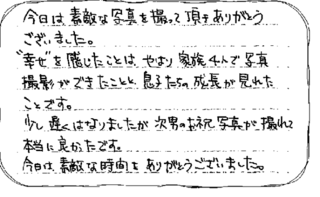 今日は素敵な写真を撮って頂きありがとう
ございました。
"幸せ"を感じたことは、やはり家族4人で写真
撮影ができたことと、息子たちの成長が見れた
ことです。
少し遅くはなりましたが次男のお祝写真が撮れて
本当に良かったです。
今日は、素敵な時間をありがとうございました。